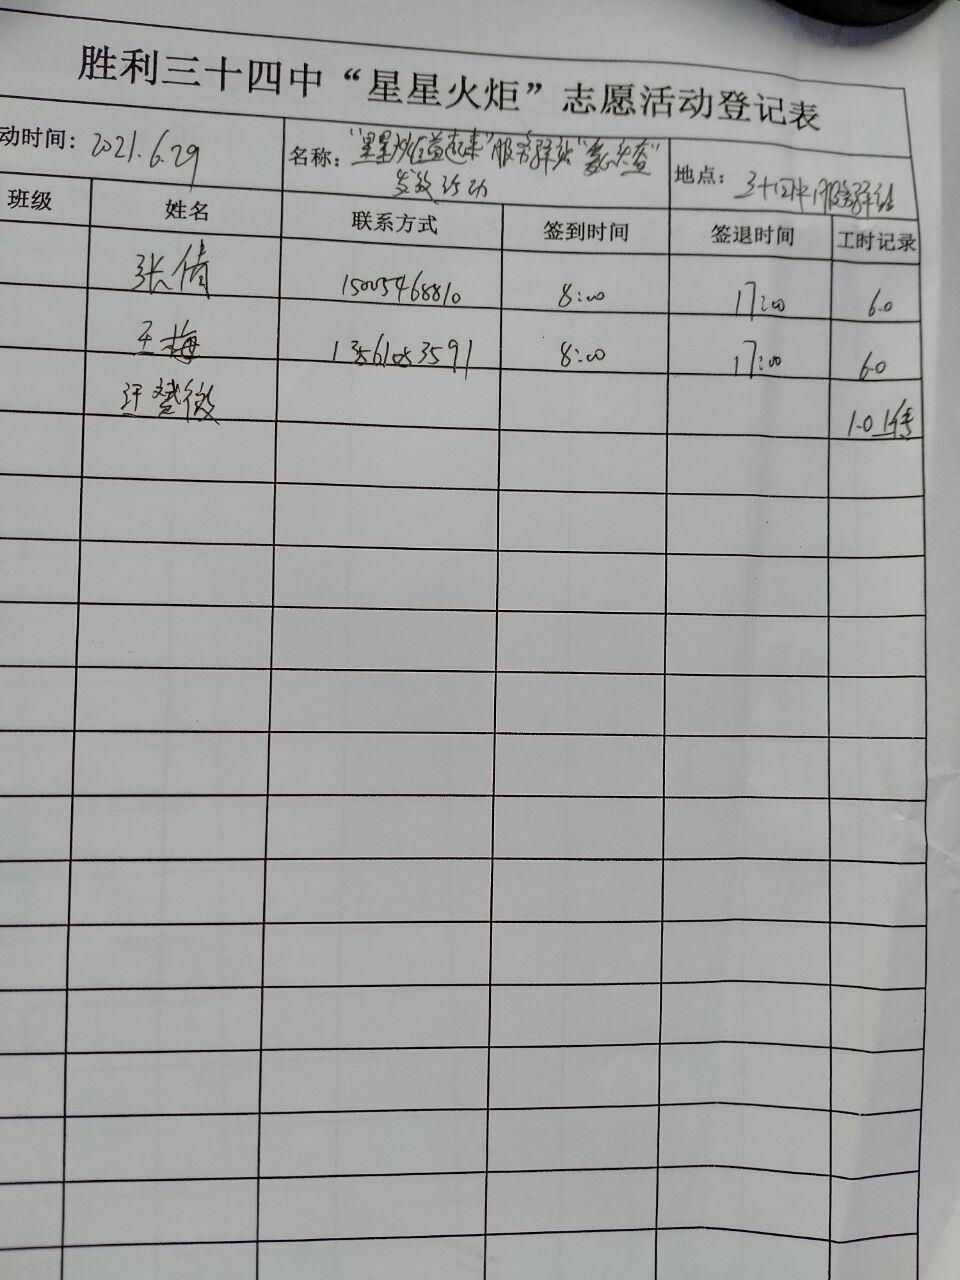 胜利三十四中“星星火炬”志愿活动登记表
动时间：2021.6.29
名称：“星星火炬益起来”服务驿站“爱心大查”
发放活动
地点：三十四中服务驿站
班级 姓名 联系方式 签到时间 签退时间 工时记录
张倩 15005468810 8:00 17:00 6.0
王梅 13561053591 8:00 17:00 6.0
1.0